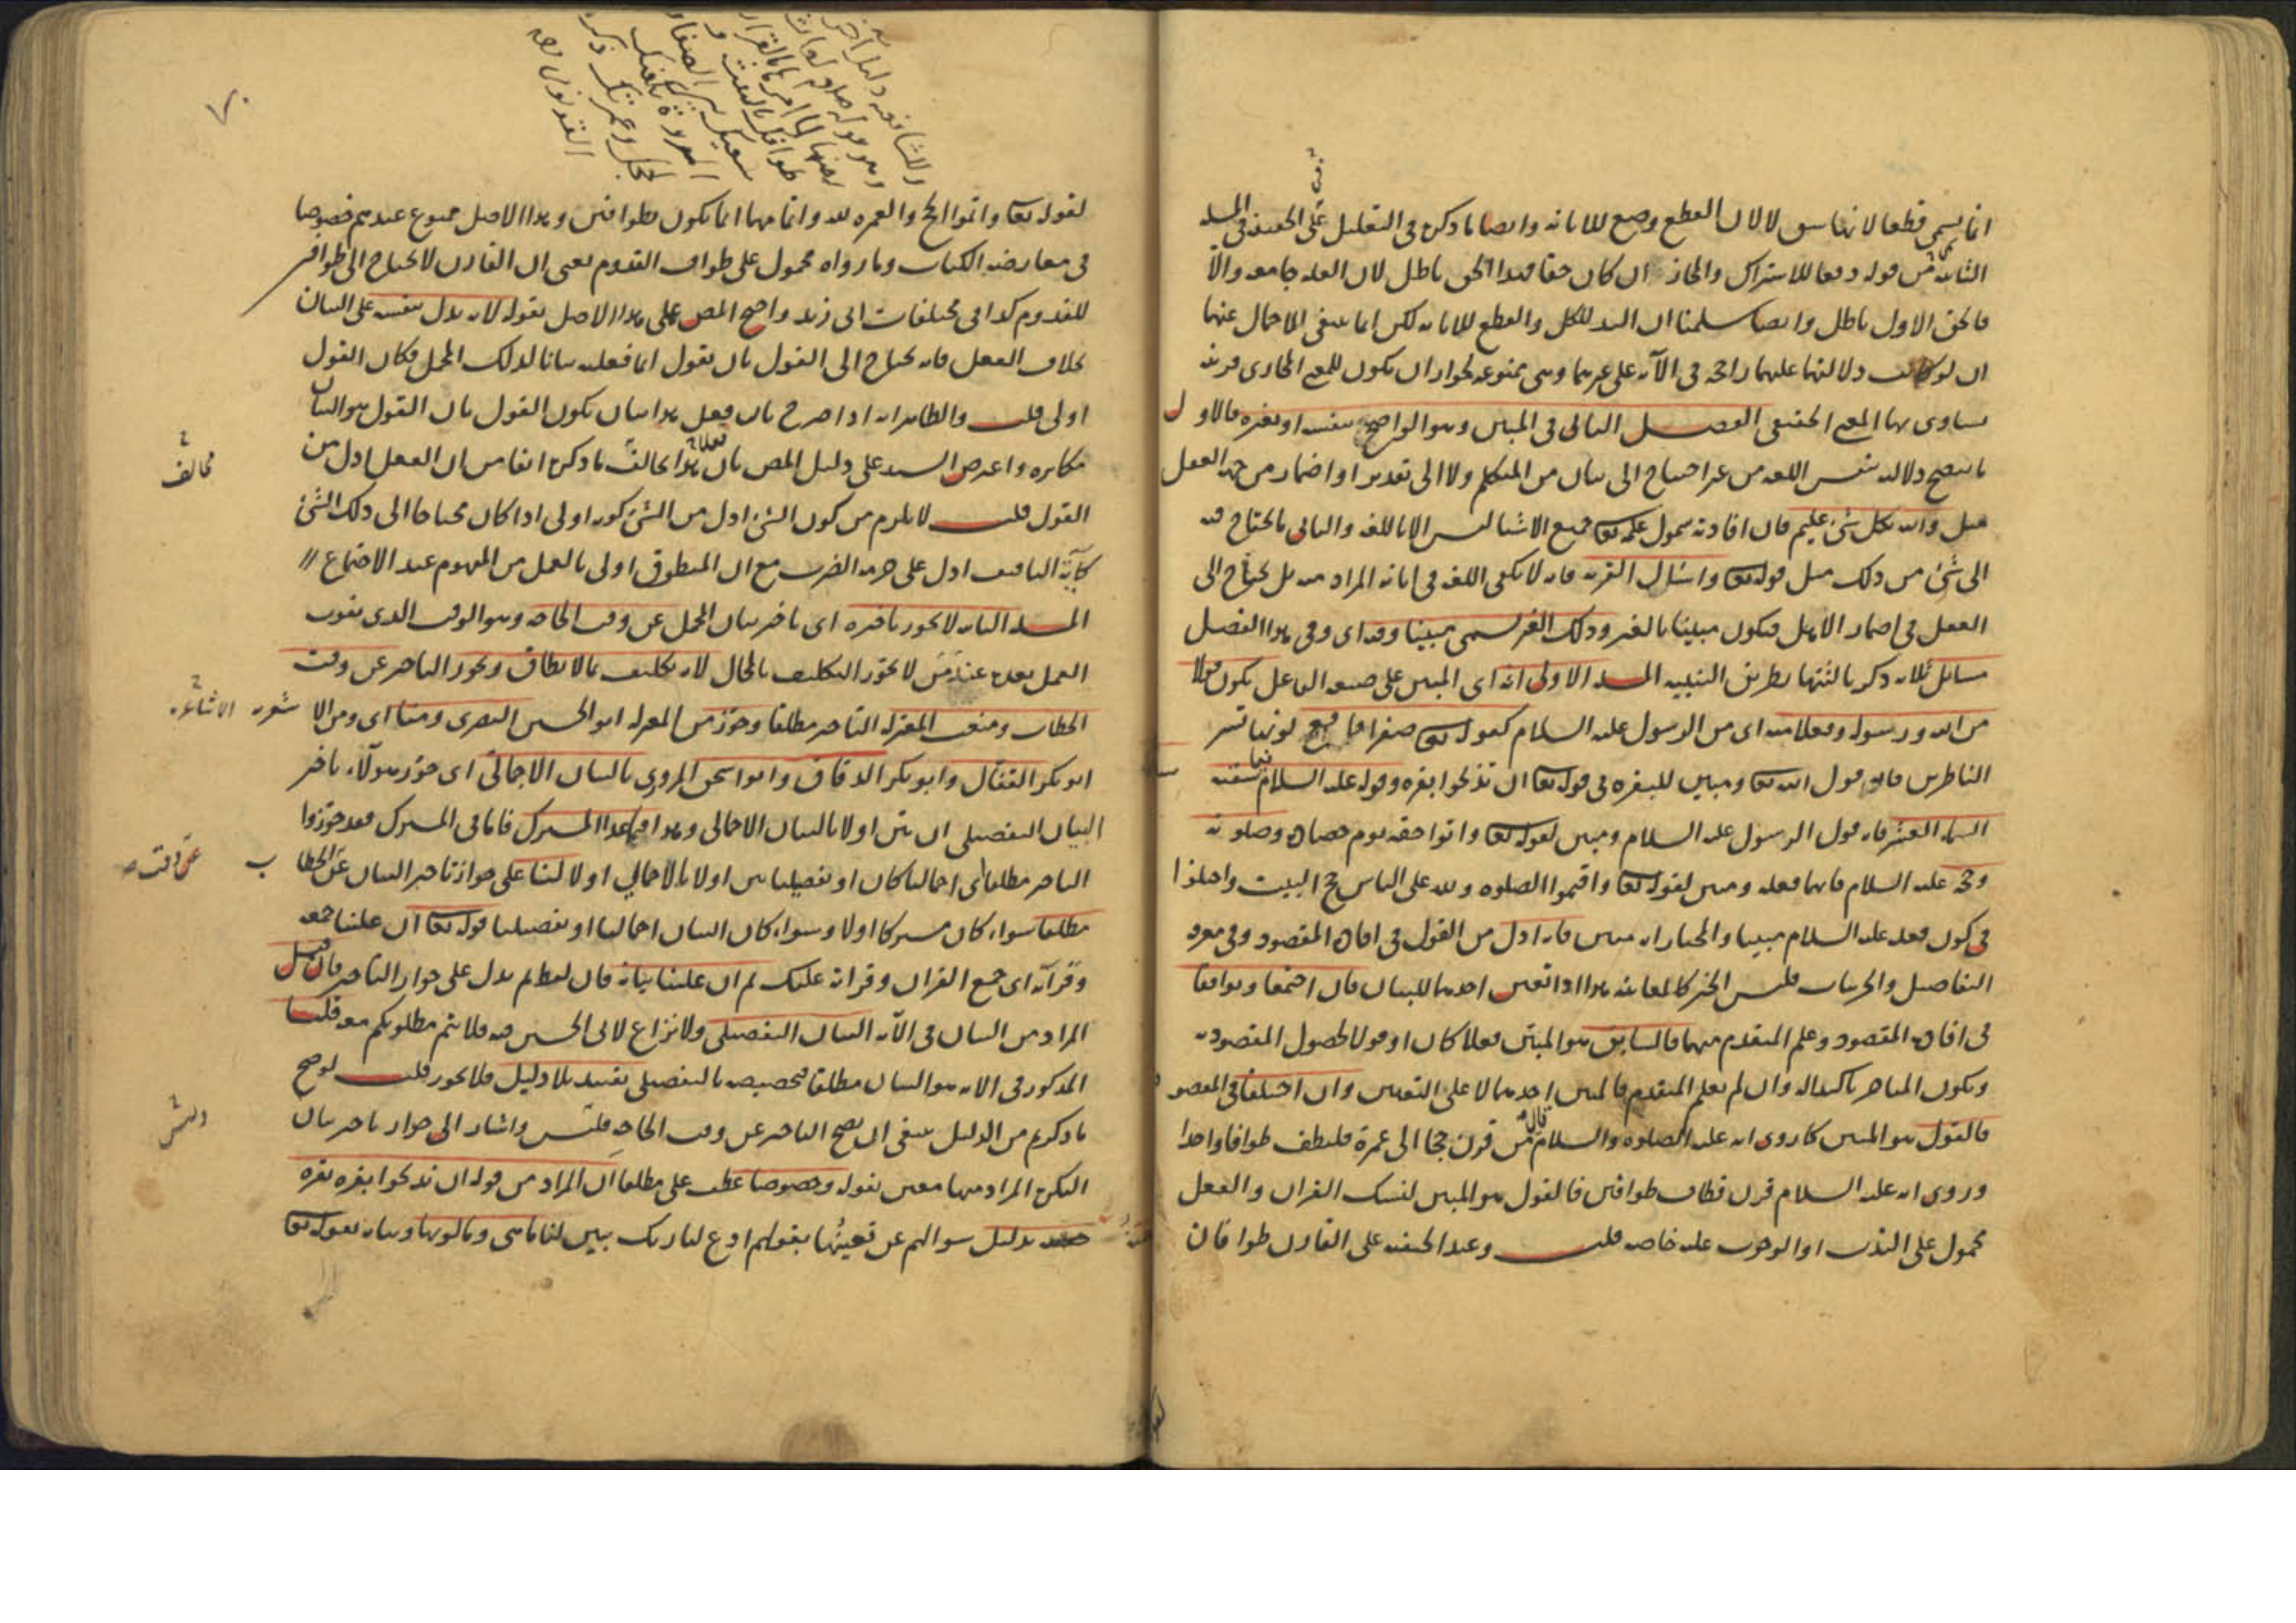 انما يسمى قطعا لابانتها سق لا لان القطع وضع للابانة وايضا ما ذكرتم في التعليل على الحقيقة في اليد
الثانية من قوله دفعا للاشتراك والمجاز ان كان حقا فهذا الحق باطل لان العلة جامعة والا
فالحق الاول باطل وايضا سلمنا ان اليد للكل والقطع للابانة لكن انما ينفى الاجمال عنها
ان لو كانت دلالتها عليهما راجحة في الآية على غيرهما وهي ممنوعة لجواز ان يكون للمعنى المجازى قرينة
يساوى بها المعنى الحقيقى الفصل الثانى فى المبين وهو الواضح بنفسه او بغيره فالاول
ما يتضح دلالته بنفس اللغة من غير احتياج الى بيان من المتكلم ولا الى تقدير او اضمار من جهة العقل
مثل والله بكل شئ عليم فان افادته شمول علمه تعا جميع الاشيا ليس الا باللغة والثانى ما يحتاج فيه
الى شئ من ذلك مثل قوله تعا واسئال القرية فانه لا يكفى اللغة فى ابانة المراد منه بل يحتاج الى
العقل فى اضمار الاهل فيكون مبينا بالغير وذلك الغير يسمى مبينا وفيه اى وفى هذا الفصل
مسائل ثلاث ذكر ثالثتها بطريق التنبيه المسئلة الاولى انه اى المبين على صيغة الفاعل يكون قولا
من الله ورسوله وفعلا منه اى من الرسول عليه السلام كقوله تعا صفرا فاقع لونها تسر
الناظرين فانه قول الله تعا ومبين للبقرة فى قوله تعا ان تذبحوا بقرة وقوله عليه السلام فيما سقته
السما العشر فانه قول الرسول عليه السلام ومبين لقوله تعا واتوا حقه يوم حصاده وصلوته
وحجه عليه السلام فانهما فعله ومبين لقوله تعا واقيموا الصلوة ولله على الناس حج البيت واختلفوا
فى كون فعله عليه السلام مبينا والمختار انه مبين فانه ادل من القول فى افادة المقصود وفى معرفة
التفاصيل والجزئيات فليس الخبر كالمعاينة هذا اذا تعين احدهما للبيان فان اجتمعا وتوافقا
فى افادة المقصود وعلم المتقدم منهما فالسابق هو المبين فعلا كان او قولا لحصول المقصود به
ويكون المتاخر تاكيدا له وان لم يعلم المتقدم فالمبين احدهما لا على التعيين وان اختلفا فى المقصود
فالقول هو المبين كما روى انه عليه الصلوة والسلام قال من قرن حجا الى عمرة فليطف طوافا واحدا
وروى انه عليه السلام قرن فطاف طوافين فالقول هو المبين لنسك القران والفعل
محمول على الندب او الوجوب عليه خاصة قلت وعند الحنفية على القارن طوافان
٧٠
لقوله تعا واتموا الحج والعمرة لله واتمامهما انما يكون بطوافين وهذا الاصل ممنوع عندهم خصوصا
فى معارضة الكتاب وما رواه محمول على طواف القدوم يعنى ان القارن لا يحتاج الى طوافين
للقدوم كذا فى مختلفات ابى زيد واحتج المص على هذا الاصل بقوله لانه يدل بنفسه على البيان
بخلاف الفعل فانه يحتاج الى القول بان يقول انما فعلته بيانا لذلك المجمل فكان القول
اولى قلت والظاهر انه اذا صرح بان فعل هذا بيان يكون القول بان القول هو البيان
مكابرة واعترض السيد على دليل المص بان هذا يخالف ما ذكرتم انفا من ان الفعل ادل من
القول قلت لا يلزم من كون الشئ ادل من الشئ كونه اولى اذا كان محتاجا الى ذلك الشئ
كآية التافيف ادل على حرمة الضرب مع ان المنطوق اولى بالعمل من المفهوم عند الاجتماع
المسئلة الثانية لا يجوز تاخيره اى تاخير بيان المجمل عن وقت الحاجة وهو الوقت الذى يفوت
العمل بعده عند من لا يجوز التكليف بالمحال لانه تكليف بالا يطاق ويجوز التاخير عن وقت
الخطاب ومنعت المعتزلة التاخير مطلقا وجوز من المعتزلة ابو الحسين البصرى ومنا اى ومن الا شعرية
ابو بكر القفال وابو بكر الدقاق وابو اسحق المروزى بالبيان الاجمالى اى جوز هولآء تاخير
البيان التفصيلى ان بين اولا بالبيان الاجمالى وهذا فيما عدا المشترك فاما فى المشترك فقد جوزوا
التاخير مطلقا اى اجماليا كان او تفصيليا بين اولا بالاجمالي او لا لنا على جواز تاخير البيان عن الخطاب
مطلقا سواء كان مشتركا اولا وسواء كان البيان اجماليا او تفصيليا قوله تعا ان علينا جمعه
وقرآنه اى جمع القران وقراته عليك ثم ان علينا بيانه فان لفظ ثم يدل على جواز التاخير فان قيل
المراد من البيان فى الآية البيان التفصيلى ولا نزاع لابى الحسين فيه فلا يتم مطلوبكم معه قلنا
المذكور فى الاية هو البيان مطلقا فتخصيصه بالتفصيلى تقييد بلا دليل فلا يجوز قلت لو صح
ما ذكرتم من الدليل ينبغى ان يصح التاخير عن وقت الحاجة فليس واشار الى جواز تاخير بيان
النكرة المراد منها معين بقوله وخصوصا عطف على مطلقا ان المراد من قوله ان تذبحوا بقرة بقرة
معينة بدليل سوالهم عن تعيينها بقولهم ادع لنا ربك يبين لنا ما هى وما لونها وبيانه بقوله تعا
مخالف
الاشاعرة
عن وقت